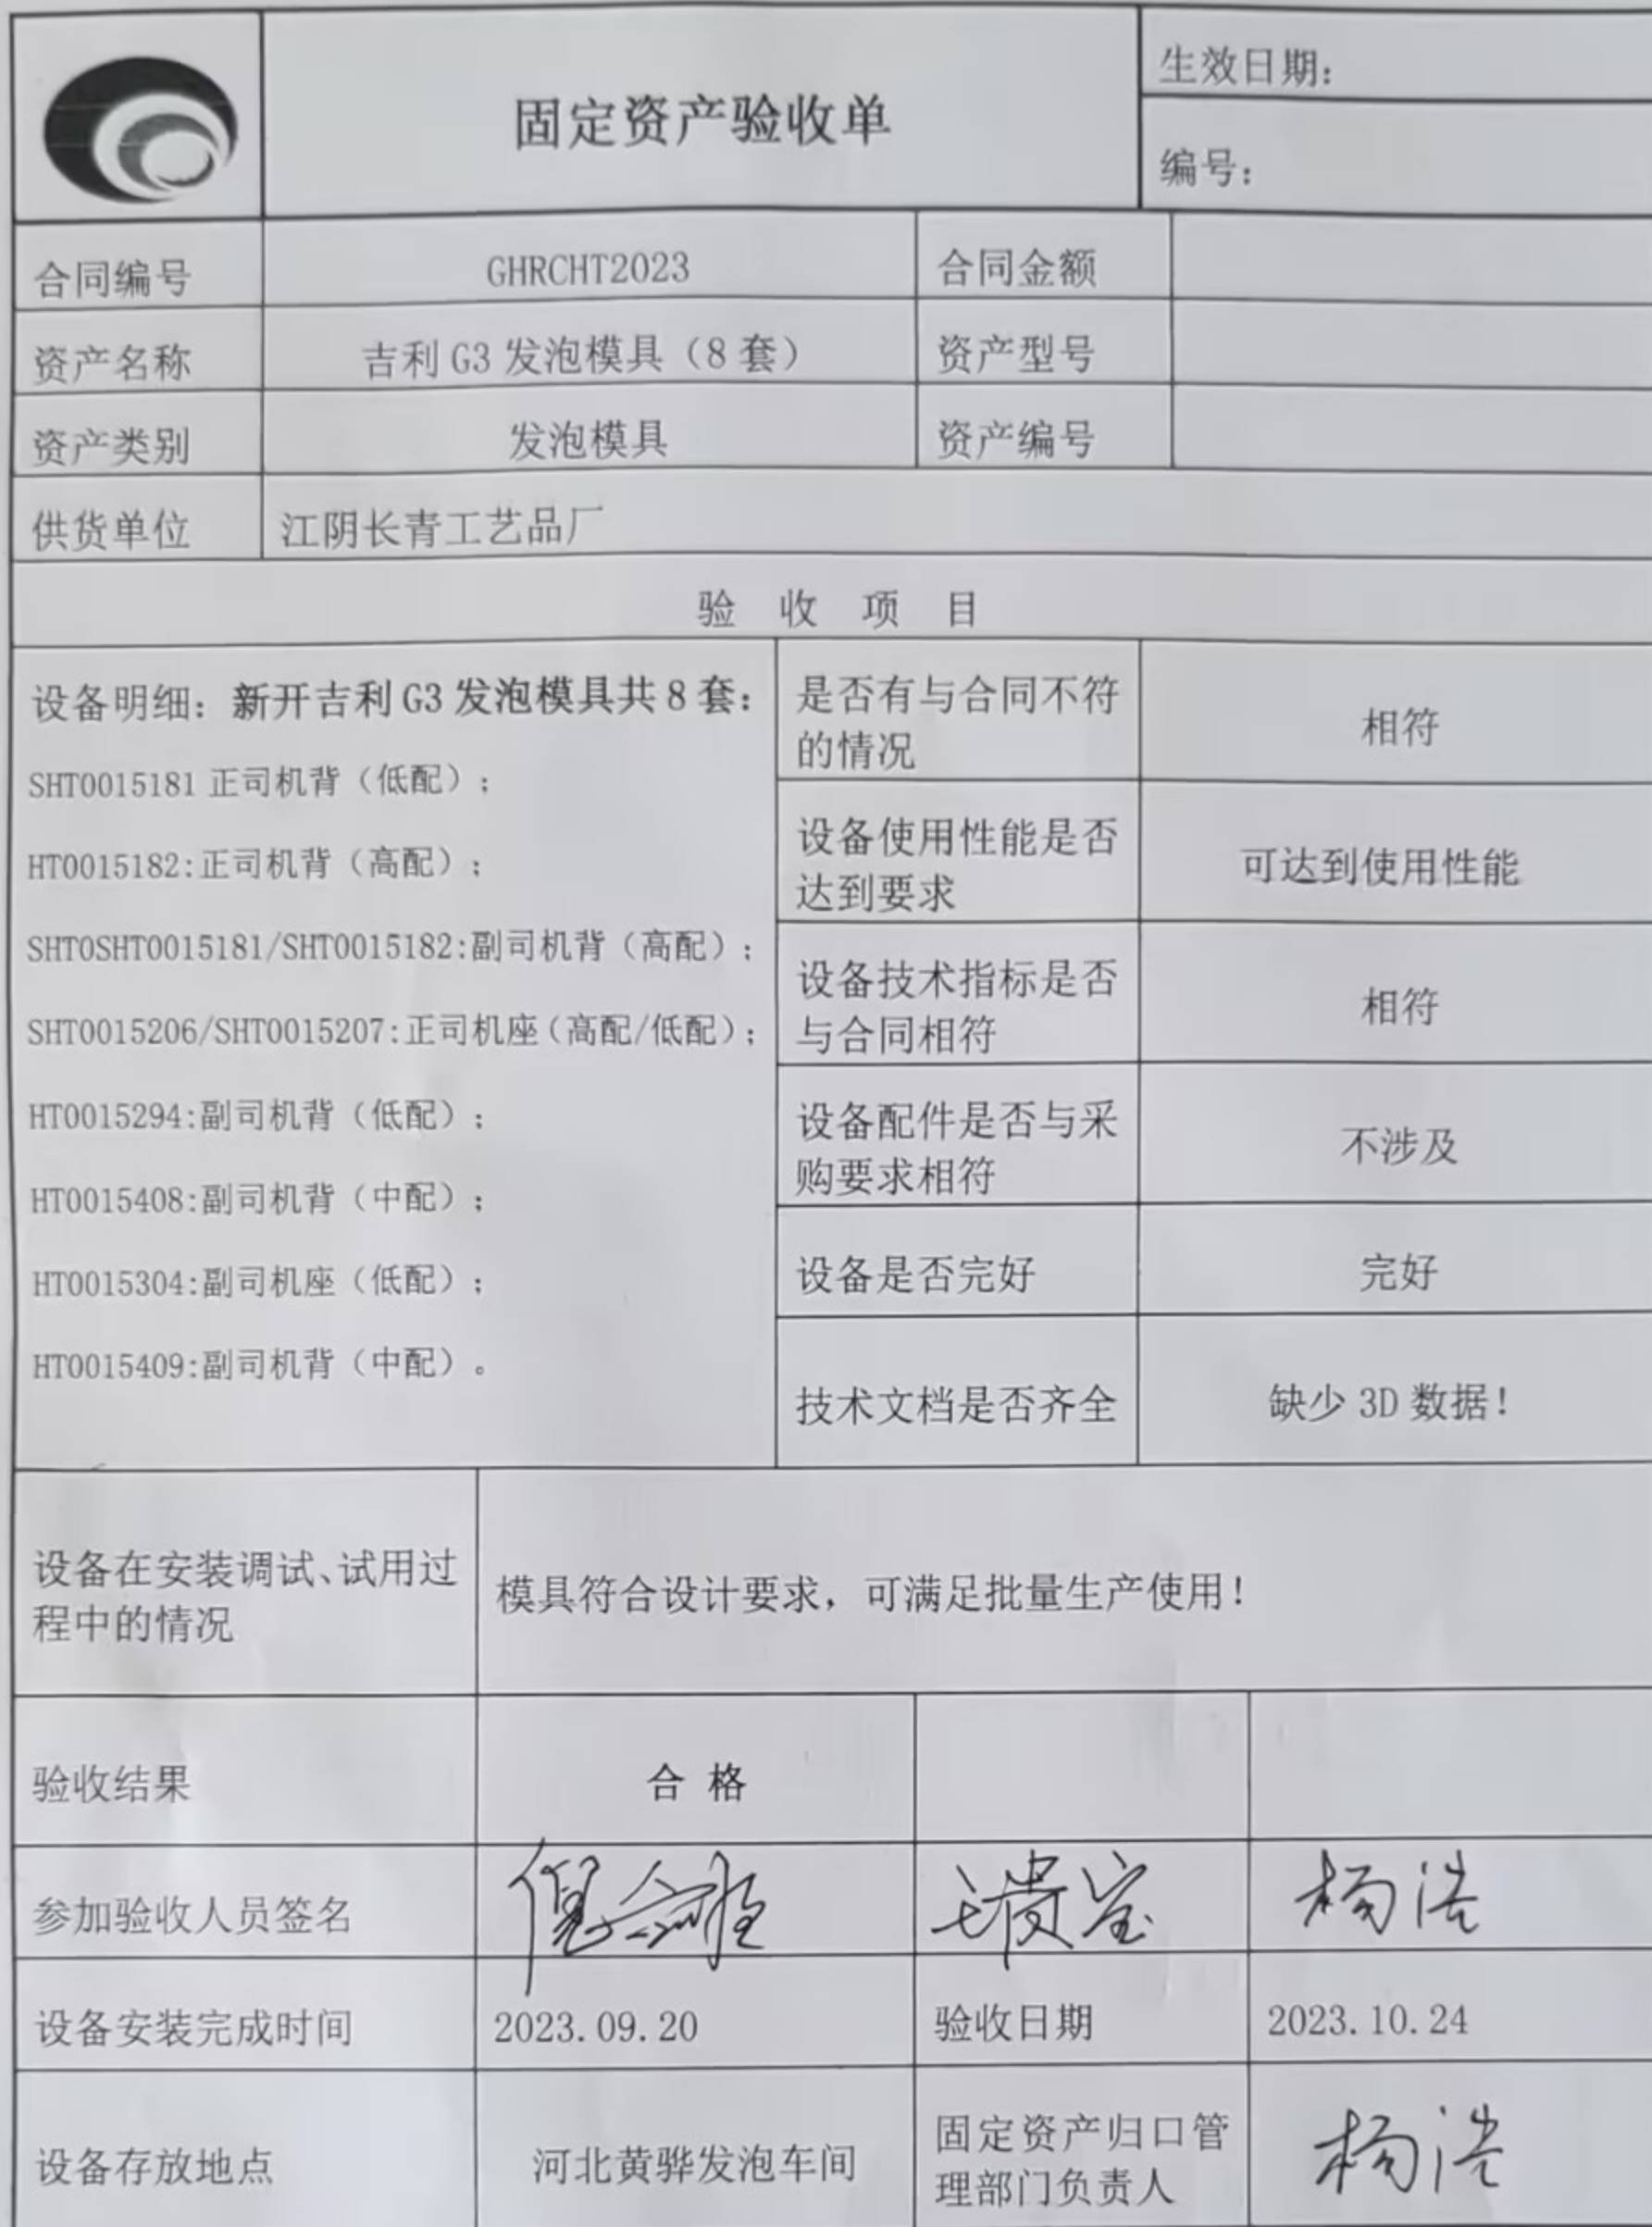 固定资产验收单
生效日期：
编号：
合同编号 GHRCHT2023 合同金额
资产名称 吉利 G3 发泡模具（8 套） 资产型号
资产类别 发泡模具 资产编号
供货单位 江阴长青工艺品厂
验 收 项 目
设备明细：新开吉利 G3 发泡模具共 8 套：
SHT0015181 正司机背（低配）；
HT0015182:正司机背（高配）；
SHT0SHT0015181/SHT0015182:副司机背（高配）；
SHT0015206/SHT0015207:正司机座（高配/低配）；
HT0015294:副司机背（低配）；
HT0015408:副司机背（中配）；
HT0015304:副司机座（低配）；
HT0015409:副司机背（中配）。
是否有与合同不符
的情况
相符
设备使用性能是否
达到要求
可达到使用性能
设备技术指标是否
与合同相符
相符
设备配件是否与采
购要求相符
不涉及
设备是否完好 完好
技术文档是否齐全 缺少 3D 数据！
设备在安装调试、试用过
程中的情况
模具符合设计要求，可满足批量生产使用！
验收结果 合 格
参加验收人员签名 杨浩
设备安装完成时间 2023.09.20 验收日期 2023.10.24
设备存放地点 河北黄骅发泡车间
固定资产归口管
理部门负责人
杨浩